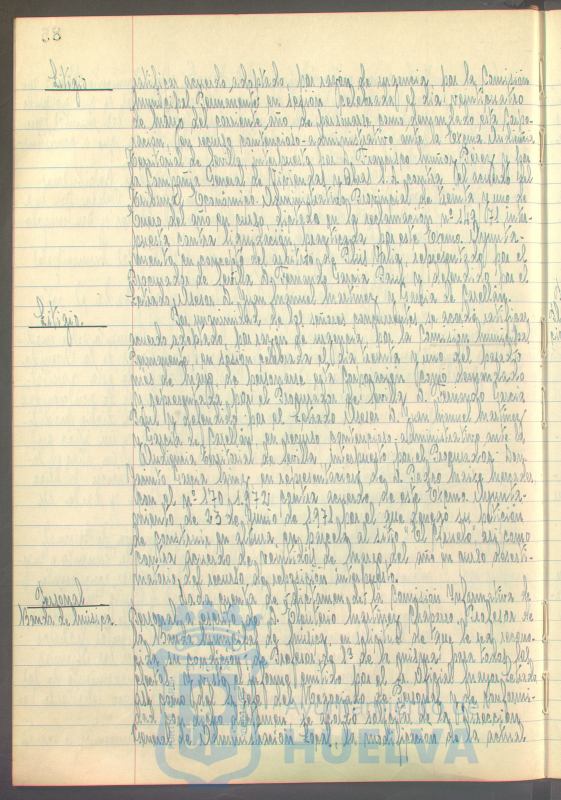 85
Litigio
ratificar acuerdo adoptado, por razón de urgencia por la Comisión
Municipal Permanente en sesión celebrada el día veinticuatro
de mayo del corriente año, de personarse, como demandado esta Corpo-
ración, en recurso contencioso-administrativo ante la Excma. Audiencia
Territorial de Sevilla interpuesto por D. Francisco Muñoz Pérez y por
la Compañía General de Viviendas y Obras S.A. contra el acuerdo del
Tribunal Económico Administrativo Provincial de treinta y uno de
Enero del año en curso dictado en la reclamación nº 149/71 inter-
puesta contra liquidación practicada por este Excmo. Ayunta-
miento en concepto del arbitrio de Plus Valía, representado por el
Procurador de Sevilla D. Fernando García Paul y defendido por el
Letrado Asesor D. Juan Manuel Martínez y García de
Litigio
Por unanimidad de los señores concurrentes, se acordó ratificar
acuerdo adoptado, por razón de urgencia por la Comisión Municipal
Permanente en sesión celebrada el día treinta y uno del pasado
mes de Mayo, de personarse esta Corporación como demandado
representada por el Procurador de Sevilla D. Fernando García
Paul y defendido por el Letrado Asesor D. Juan Manuel Martínez
y García de en recurso contencioso-administrativo ante la
Audiencia Territorial de Sevilla, interpuesto por el Procurador Don
García en representación de D. Pedro
con el nº 170/1972, contra acuerdo de este Excmo. Ayunta-
miento de 23 de Junio de 1971 por el que denegó su petición
de construir en altura en parcela al sitio "El así como
contra acuerdo de veintidós de Marzo del año en curso desesti-
matorio del recurso de reposición interpuesto.
Personal
Banda de música.
Dada cuenta de dictamen de la Comisión Informativa de
Personal, a escrito de D. Martínez Chaparro, Profesor de
la Banda Municipal de Música, en solicitud de que le sea recono-
cida su condición de Profesor de 1ª de la misma para todos los
efectos, y visto informe emitido por el Sr. Oficial Mayor Letrado
así como del Jefe del Negociado de Personal y de conformi-
dad con dicho dictamen, se acordó solicitar de la Dirección
General de Administración Local, la modificación de la actual
HUELVA